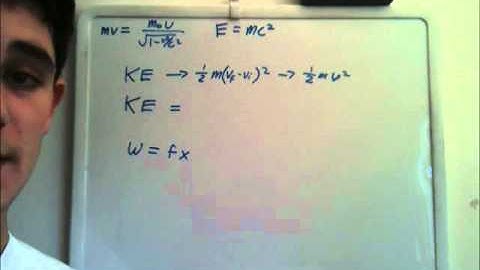 mv = m₀v / √1-v²/c² E = mc²
KE → ½ m(v_f - v_i)² → ½ m v²
KE =
W = fx